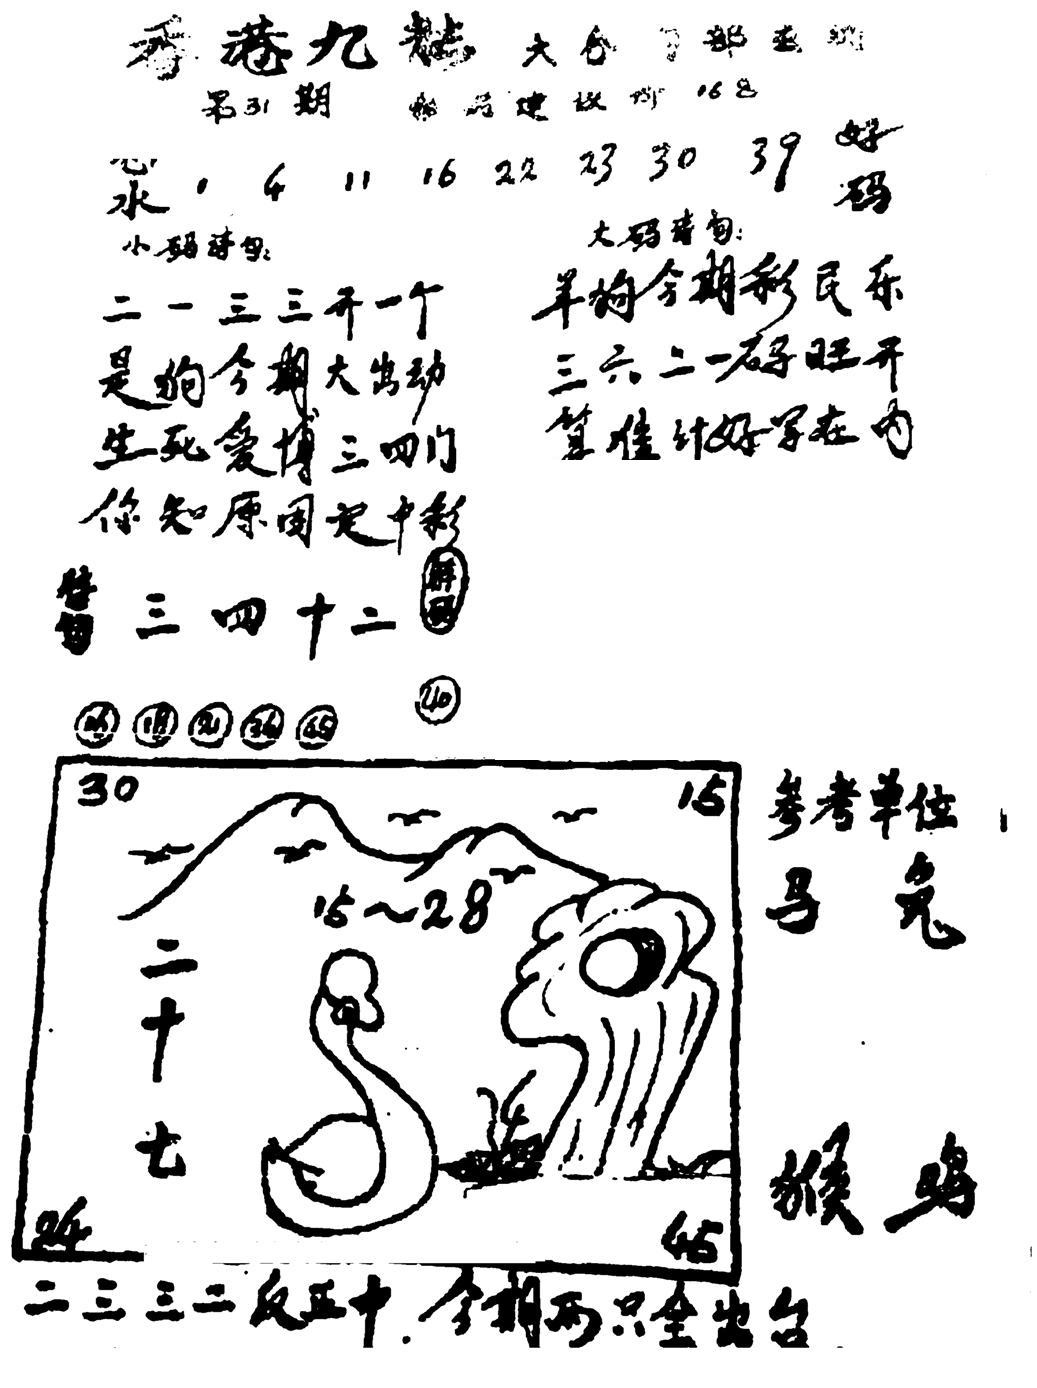 香港九龙 大会 部
第31期 建 168
水 1 4 11 16 22 23 30 39 好码
小码诗句:
二一三三开一个
是狗今期大出动
生死爱博三四门
你知原因定中彩
大码诗句:
羊狗今期彩民乐
三六二一码旺开
算准计好字在内
三四十二
解码
21 40
30 15
15~28
二十七
24 45
参考单位
马 兔
猴 鸡
二三三二反正中.今期两只全出台